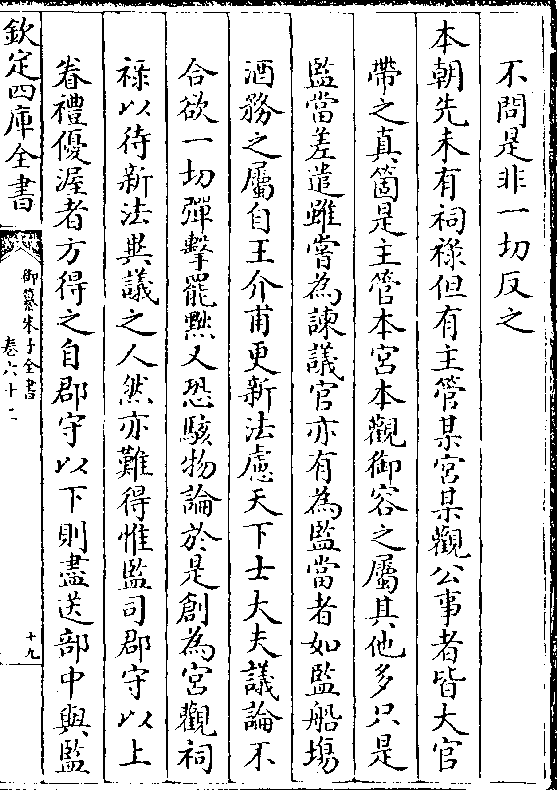 不問是非一切反之
本朝先未有祠祿但有主管某宮某觀公事者皆大官
帶之真箇是主管本宮本觀御容之屬其他多只是
監當差遣雖嘗為諫議官亦有為監當者如監船塲
酒務之屬自王介甫更新法慮天下士大夫議論不
合欲一切彈擊罷黜又恐駭物論於是創為宮觀祠
祿以待新法異議之人然亦難得惟監司郡守以上
眷禮優渥者方得之自郡守以下則盡送部中與監
欽定四庫全書
御纂朱子全書
卷六十二
十九